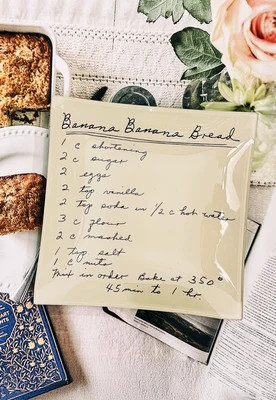 Banana Banana Bread
1 c shortening
2 c sugar
2 eggs
2 tsp vanilla
2 tsp soda in 1/2 c hot water
3 c flour
2 c mashed
1 tsp salt
1 c nuts
Mix in order Bake at 350°
45 min to 1 hr.